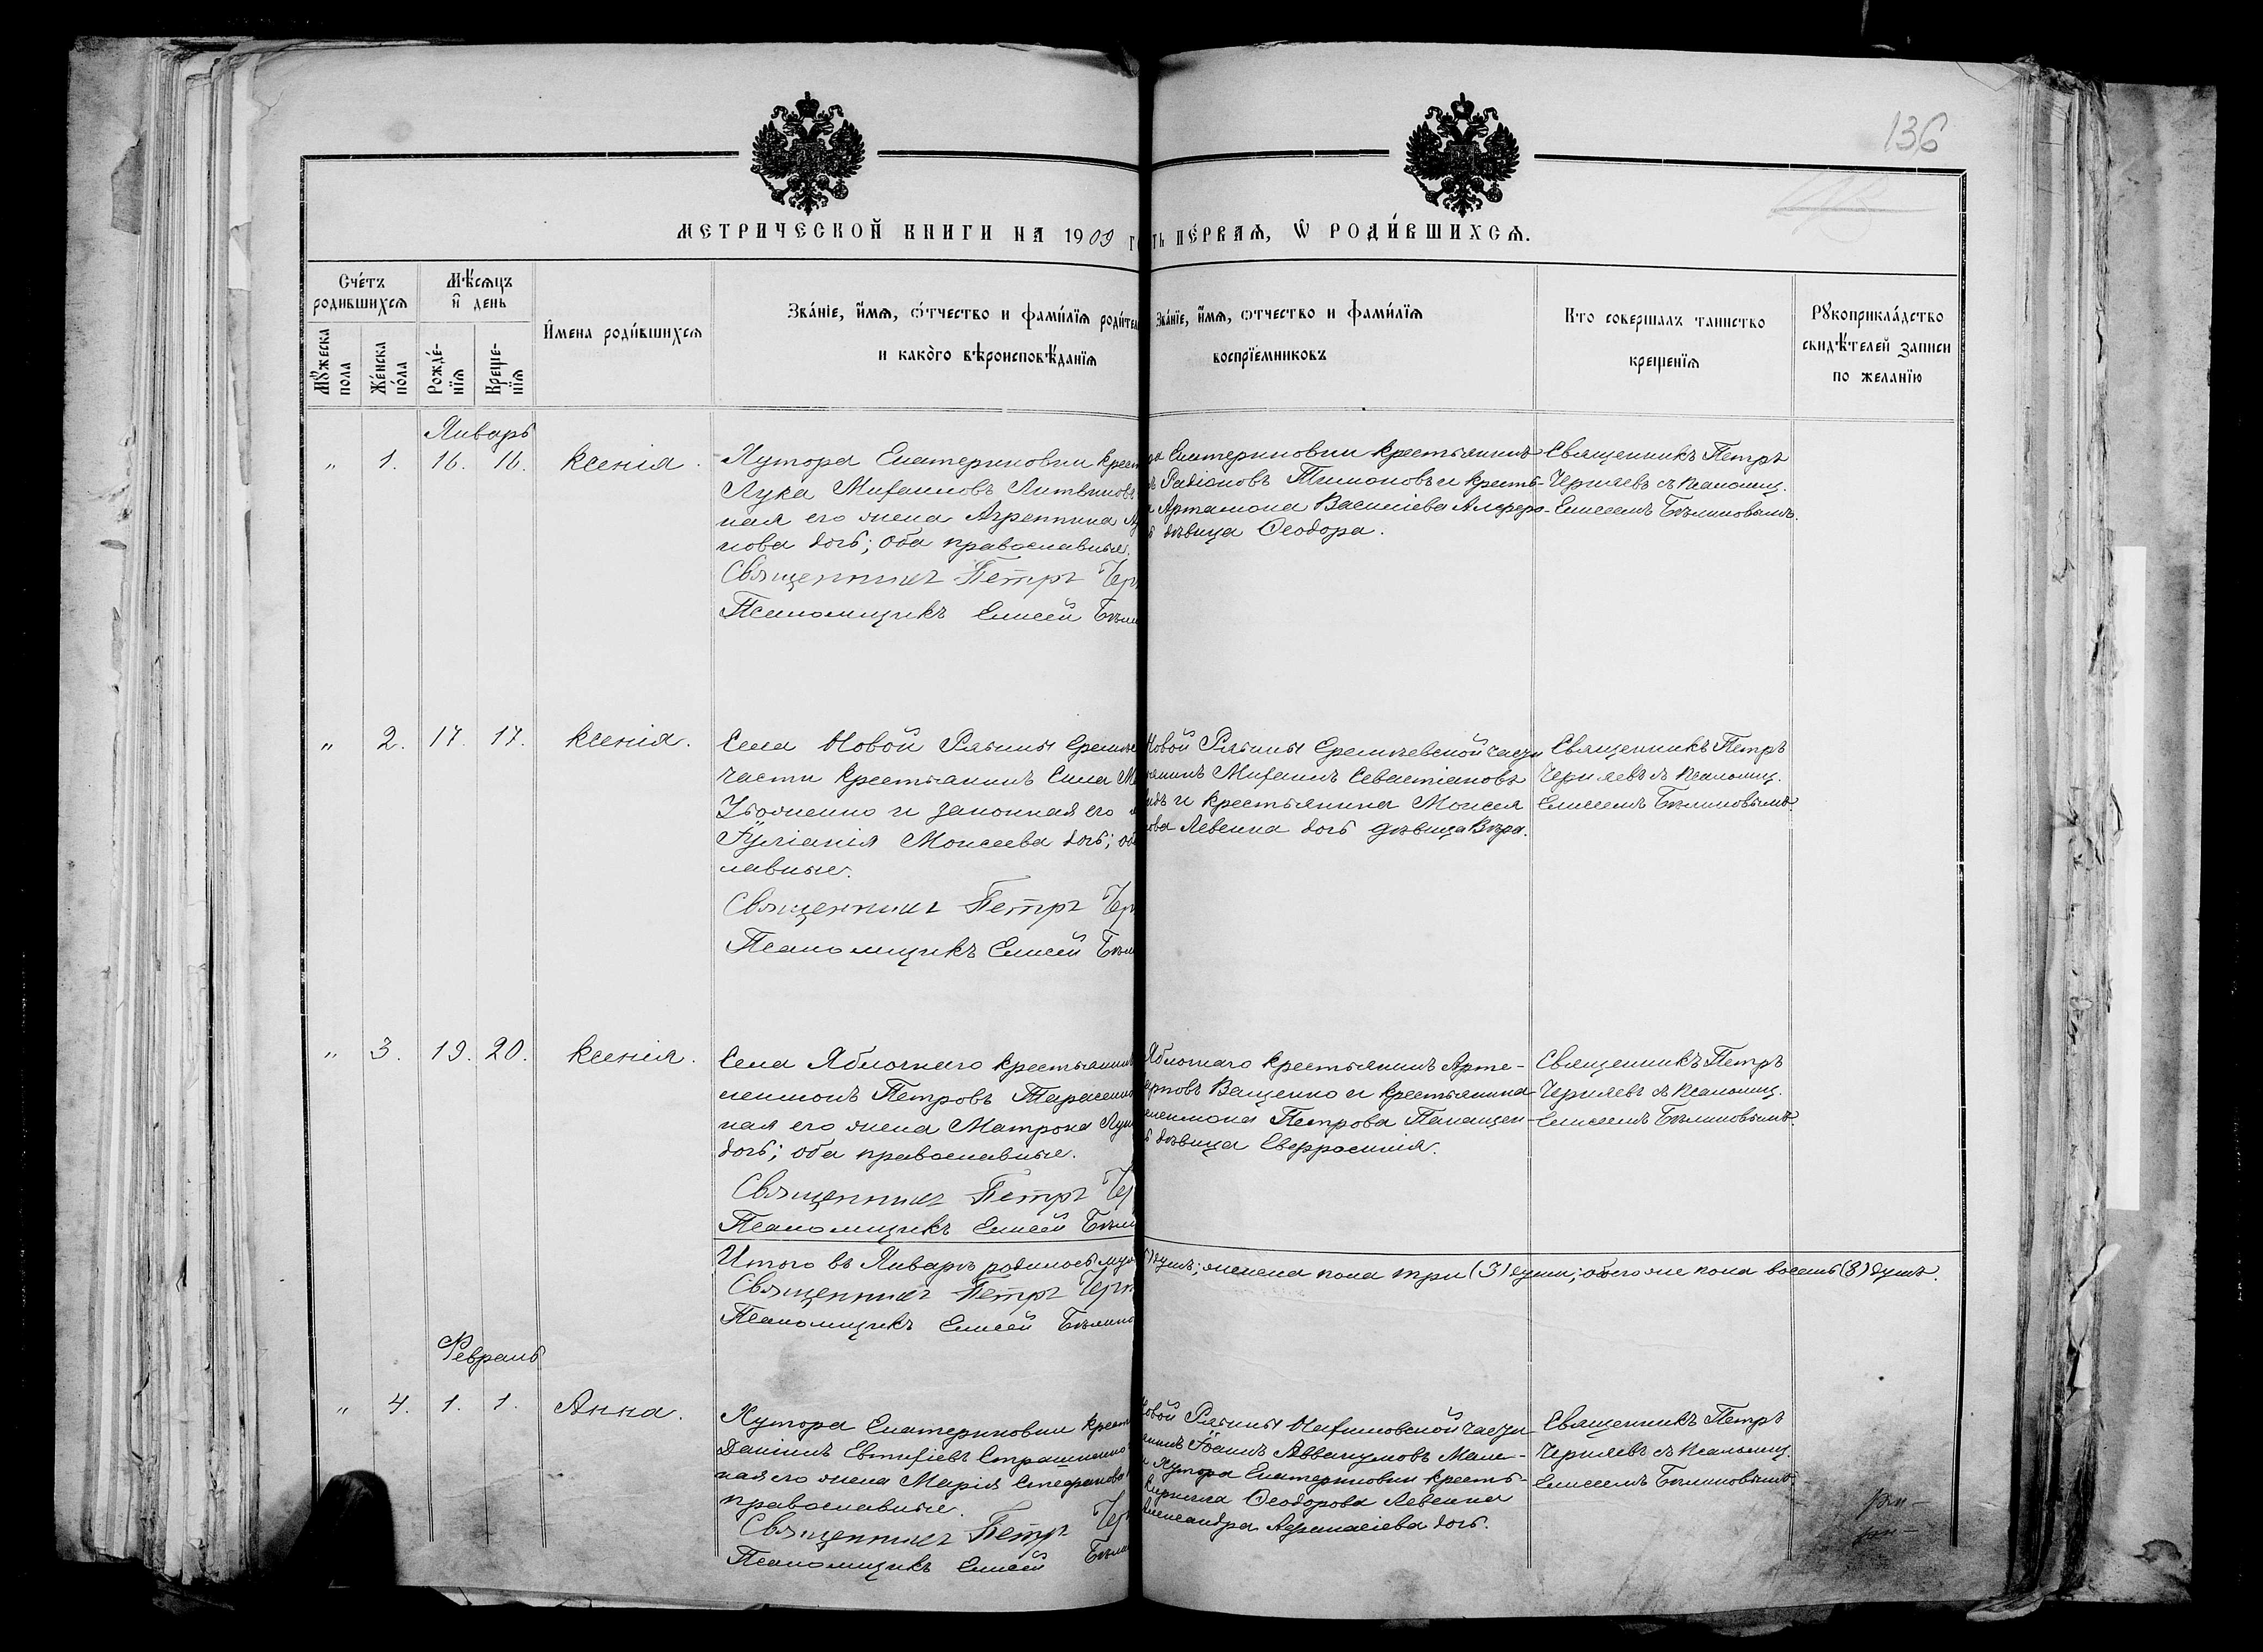 136
МЕТРИЧЕСКОЙ КНИГИ НА 1909 г
ть пе́рвая, Ѡ РОДИ́ВШИХСЯ.
Сче́тъ родившихся
Мѣ́сяцъ и҆ день
Мꙋ́жеска пола
Же́нска по́ла
Рожде́нїя
Креще́нїя
И҆мена роди́вшихся
Зва́нїе, и҆́мя, ѻ҆́тчество и фами́лїя роди́тел
и како̀го вѣроисповѣ́данїя
Зва́нїе, и҆́мя, ѻтчество и фами́лїя
воспрїе́мниковъ
Кто совершалъ таинство
крещенїя
Рꙋкоприкла́дство
свидѣ́телей записи
по желанїю
Январь
„ 1. 16. 16. Ксенія.
Хутора Екатериновки крест
Лука Михаиловъ Литвиновъ
ная его жена Агреппина
нова дочь; оба православные.
Священникъ Петръ Чер
Псаломщикъ Елисей Бѣли
ра Екатериновки крестьянинъ
Радіоновъ Тимоновъ и кресть-
Артамона Василіева Алферо-
дѣвица Ѳеодора.
Священникъ Петръ
Черняевъ съ псаломщ.
Елисеемъ Бѣлиновымъ.
„ 2. 17. 17. Ксенія.
Села Новой Рябины
части крестьянинъ Сила М
и законная его
Іуліанія Моисеева дочь; об
лавные.
Священникъ Петръ Чер
Псаломщикъ Елисей Бѣл
Новой Рябины части
янинъ Михаилъ Севастіановъ
и крестьянина Моисея
ова Левенка дочь дѣвица Вѣра.
Священникъ Петръ
Черняевъ съ псаломщ.
Елисеемъ Бѣлиновымъ.
„ 3. 19. 20. Ксенія.
Села Яблочнаго крестьянинъ
лешмонъ Петровъ Тарасенко
ная его жена Матрона Лук
дочь; оба православные.
Священникъ Петръ Чер
Псаломщикъ Елисей Бѣли
Яблочнаго крестьянинъ Арте-
Ващенко и крестьянина
Петрова Панащен-
дѣвица Евфросинія.
Священникъ Петръ
Черняевъ съ псаломщ.
Елисеемъ Бѣлиновымъ.
Итого въ Январѣ родилось муж
душъ; женска пола три (3) души; обоего же пола восемь (8) душъ.
Священникъ Петръ Черн
Псаломщикъ Елисей Бѣлино
Февраль
„ 4. 1. 1. Анна.
Хутора Екатериновки крест
Даніилъ Евтихіевъ Страшненко
ная его жена Марія Стефанова
православные.
Священникъ Петръ Чер
Псаломщикъ Елисей Бѣли
овой Рябины части
янинъ Іоаннъ Аввакумовъ Мали-
Хутора Екатериновки кресть-
Кирилла Ѳеодорова Левенка
Александра Аѳанасіева дочь.
Священникъ Петръ
Черняевъ съ псаломщ.
Елисеемъ Бѣлиновымъ.